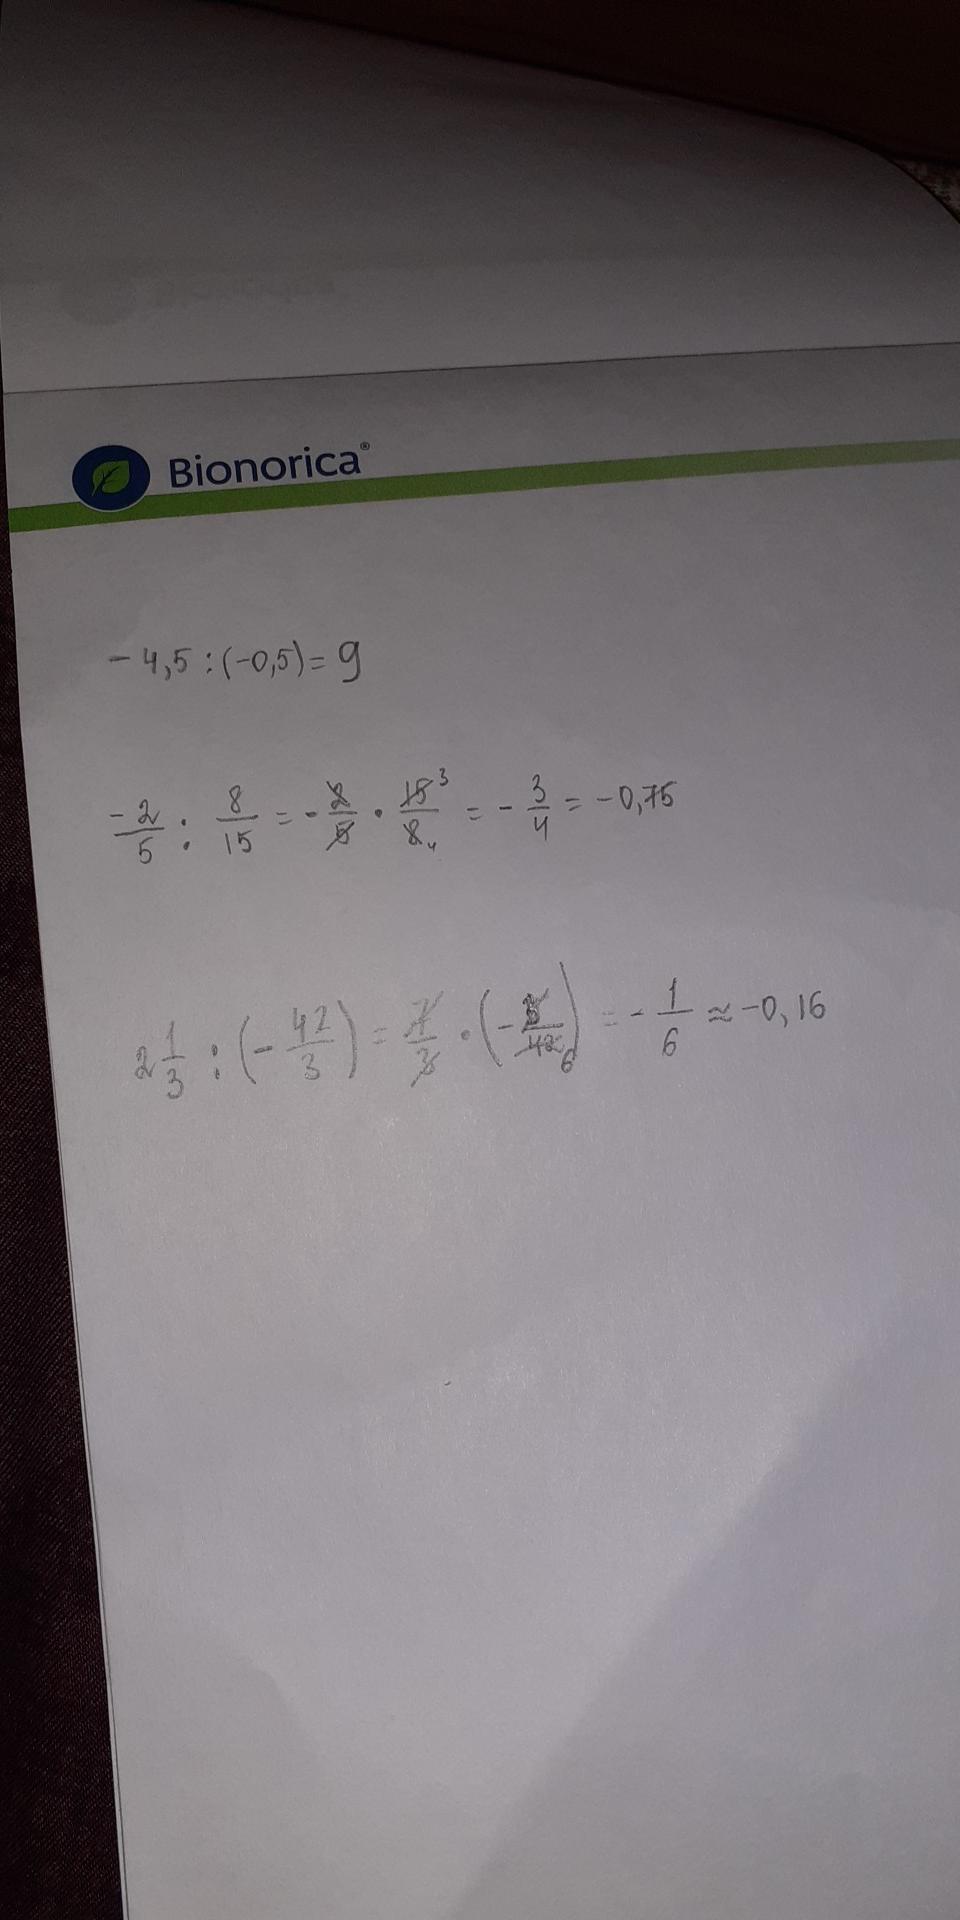 Bionorica®
- 4,5 : (-0,5) = 9
-2/5 : 8/15 = - 2/5 · 15/8 3 4 = - 3/4 = -0,75
2 1/3 : (- 42/3) = 7/3 · (- 3/42 6) = - 1/6 ≈ -0,16